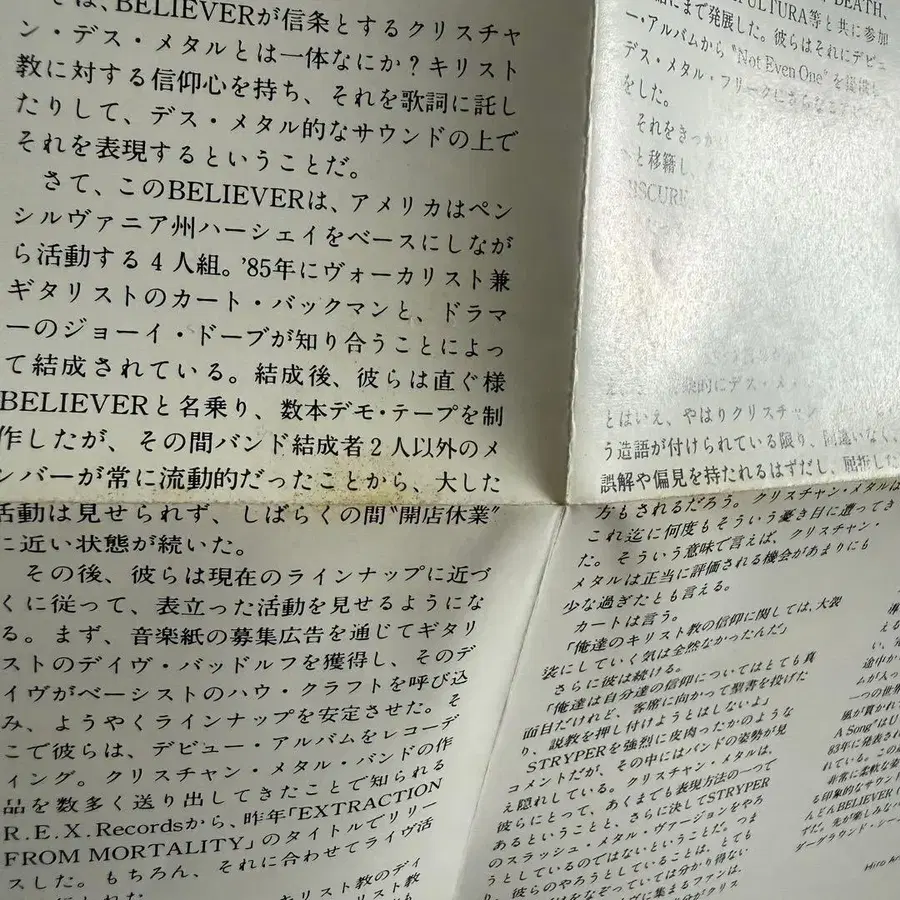 は、BELIEVERが信条とするクリスチャ
ン・デス・メタルとは一体なにか？キリスト
教に対する信仰心を持ち、それを歌詞に託し
たりして、デス・メタル的なサウンドの上で
それを表現するということだ。
さて、このBELIEVERは、アメリカはペン
シルヴァニア州ハーシェイをベースにしなが
ら活動する4人組。'85年にヴォーカリスト兼
ギタリストのカート・バックマンと、ドラマ
ーのジョーイ・ドーブが知り合うことによっ
て結成されている。結成後、彼らは直ぐ様
BELIEVERと名乗り、数本デモ・テープを制
作したが、その間バンド結成者2人以外のメ
ンバーが常に流動的だったことから、大した
活動は見せられず、しばらくの間"開店休業"
に近い状態が続いた。
その後、彼らは現在のラインナップに近づ
くに従って、表立った活動を見せるようにな
る。まず、音楽紙の募集広告を通じてギタリ
ストのデイヴ・バッドルフを獲得し、そのデ
イヴがベーシストのハウ・クラフトを呼び込
み、ようやくラインナップを安定させた。そ
こで彼らは、デビュー・アルバムをレコーデ
ィング。クリスチャン・メタル・バンドの作
品を数多く送り出してきたことで知られる
R.E.X.Recordsから、昨年「EXTRACTION
FROM MORTALITY」のタイトルでリリー
スした。もちろん、それに合わせてライヴ活
キリスト教のディ
DEATH,
PULTURA等と共に参加
にまで発展した。彼らはそれにデビュ
ー・アルバムから"Not Even One"を
デス・メタル・フリークに
をした。
それをきっか
へと移籍し、
BSCURE
的にデス・メ
とはいえ、やはりクリスチャン
う造語が付けられている限り、間違いなく、
誤解や偏見を持たれるはずだし、屈折した
方もされるだろう。クリスチャン・メタルは
これ迄に何度もそういう憂き目に遭ってき
た。そういう意味で言えば、クリスチャン・
メタルは正当に評価される機会があまりにも
少な過ぎたとも言える。
カートは言う。
「俺達のキリスト教の信仰に関しては、大袈
裟にしていく気は全然なかったんだ」
さらに彼は続ける。
「俺達は自分達の信仰についてはとても真
面目だけれど、客席に向かって聖書を投げた
り、説教を押し付けようとはしないよ」
STRYPERを強烈に皮肉ったかのような
コメントだが、その中にはバンドの姿勢が見
え隠れしている。クリスチャン・メタルは、
彼らにとって、あくまでも表現方法の一つで
あるということと、さらに決してSTRYPER
のスラッシュ・メタル・ヴァージョンをやろ
うとしているのではないということだ。つま
り、彼らのやろうとしていることは、とても
をなぞっていては分かり得ない
に集まるファンは、
える
途中か
ムが入っ
一つの世界
風が貫かれて
A Song"はU
83年に発表さ
れている。この
非常に柔軟な姿
る印象的なサウンド
んどんBELIEVER
ずだ。先が楽しみな
ダーグラウンド・シー